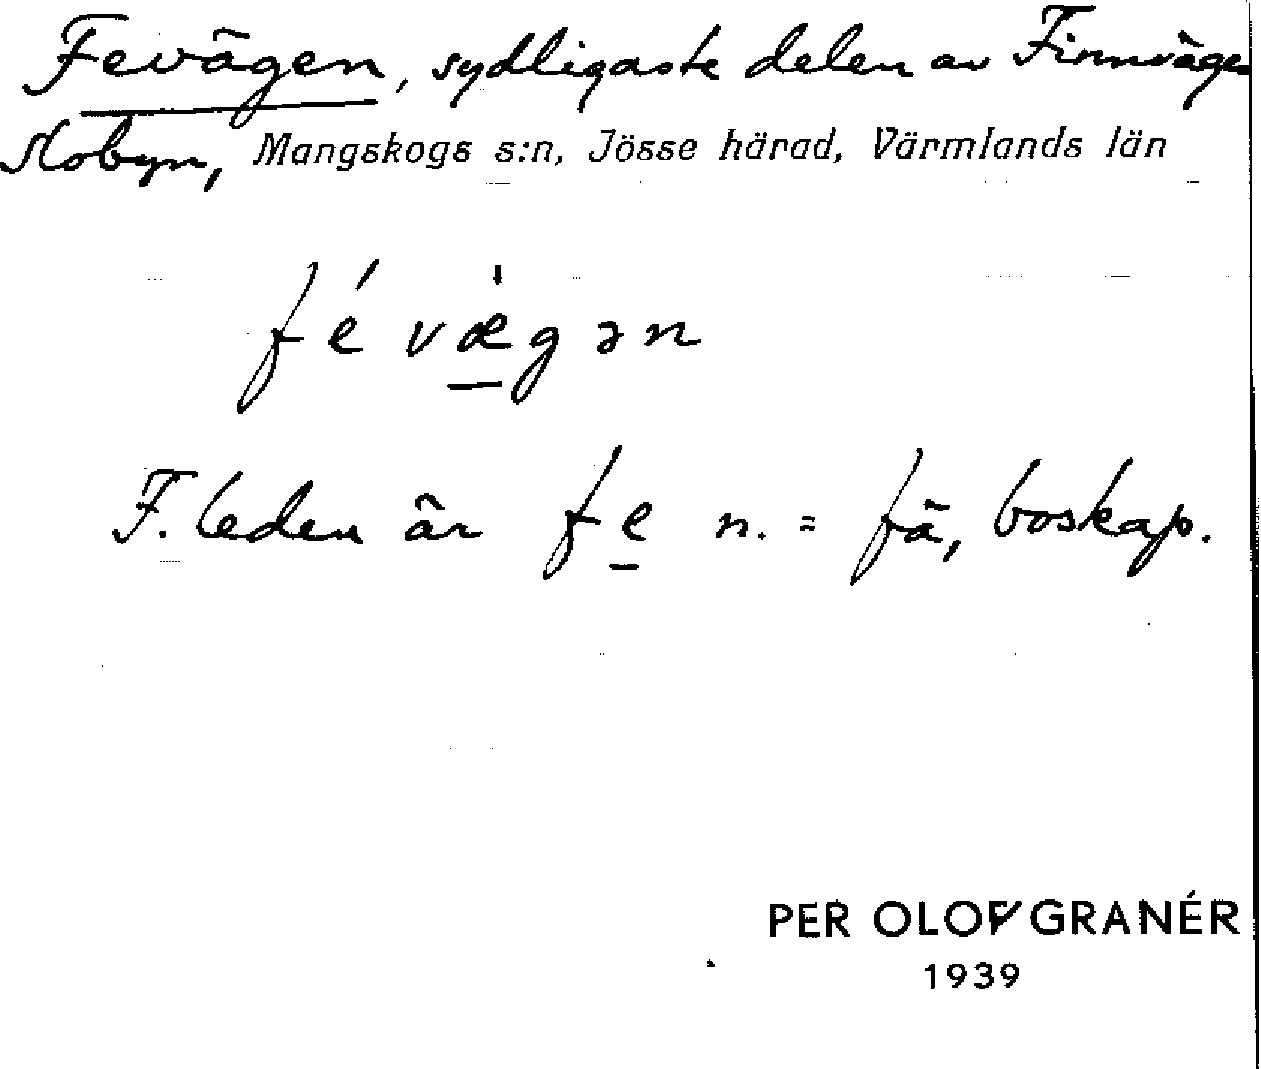 Fevägen, sydligaste delen av Finnvägen
Slobyn, Mangskogs s:n, Jösse härad, Värmlands län
fé væ̱gən
F. leden är fe̱ n. = fä, boskap.
PER OLOF GRANÉR
1939